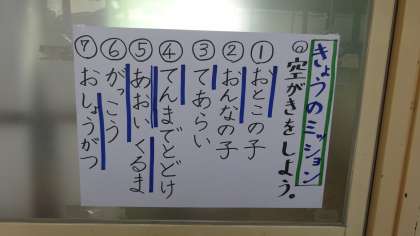 きょうのミッション
◎空がきをしよう。
①おとこの子
②おんなの子
③てあらい
④てんまでとどけ
⑤あおいくるま
⑥がっこう
⑦おしょうがつ